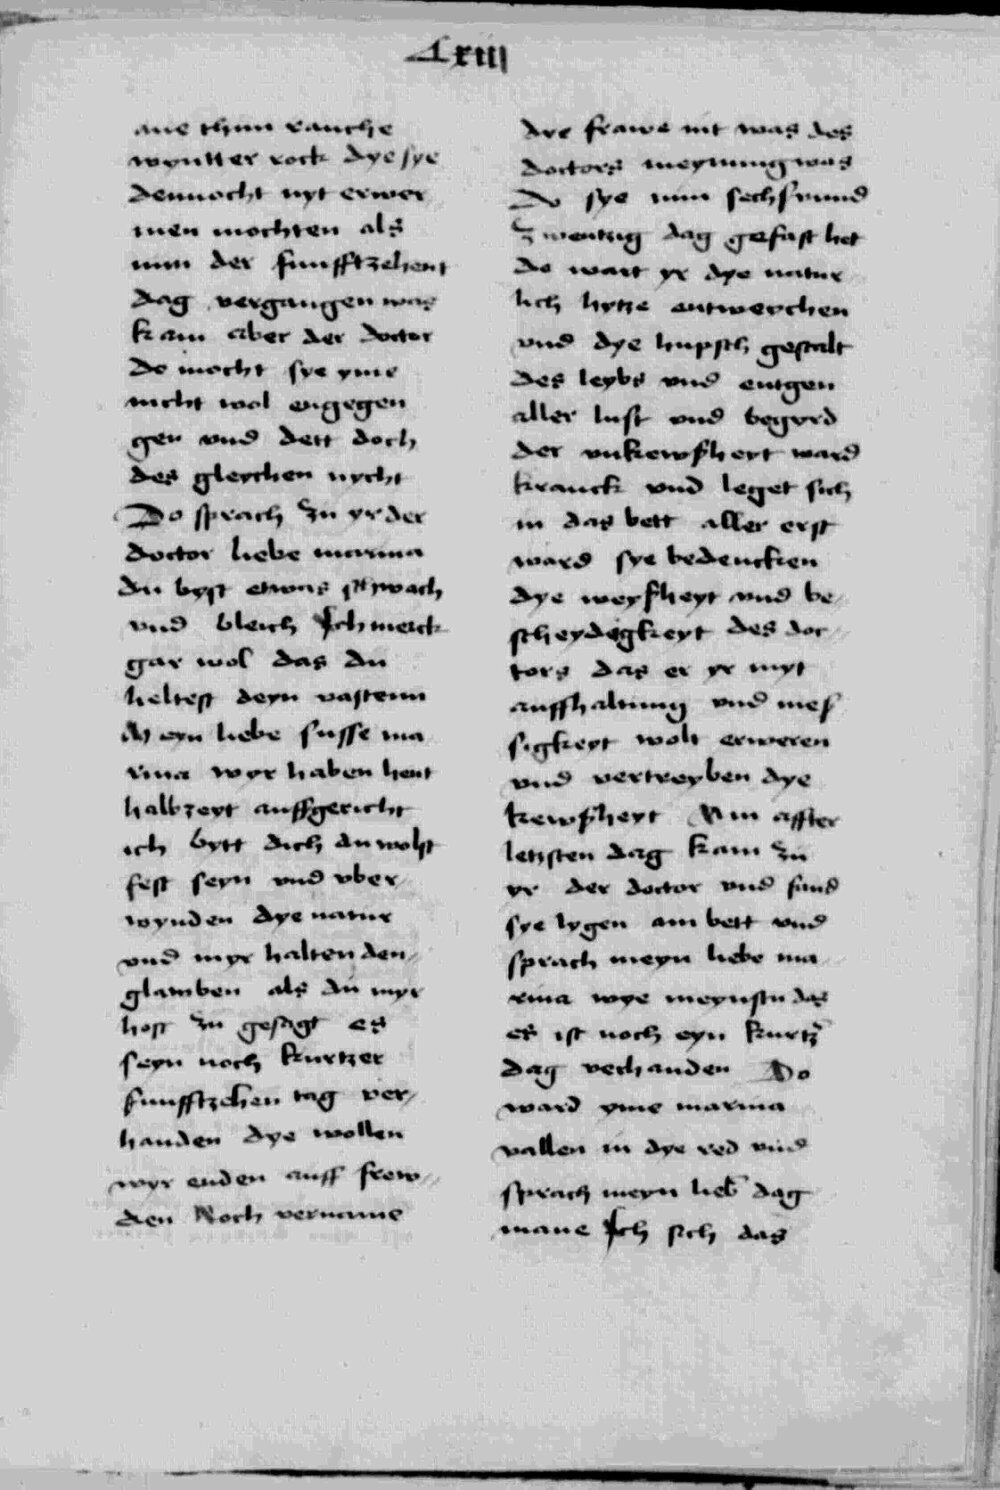 Lxiiij
ane thun rauche
wyntter rock dye sye
dennocht nyt erwer
men mochten als
nun der funfftzehent
dag vergangen was
kam aber der doctor
do mocht sye yme
nicht wol engegen
gen vnd dett doch
des gleychen nycht
Do sprach zu yr der
doctor liebe marina
du byst etwas schwach
vnd bleich Ich merck
gar wol das du
heltest deyn vastenn
Meyn liebe susse ma
rina wyr haben heut
halbzeyt auffgericht
ich bytt dich du wolst
fest seyn vnd vber
wynden dye natur
vnd myr halten den
glawben als du myr
host zu gesagt es
seyn noch kurtzer
funfftzehen tag ver
handen dye wollen
wyr enden auff frew
den Noch vername
dye frawe nit was des
doctors meynung was
Do sye nun sechs vnnd
zwentzig dag gefast het
do wart yr dye natur
lich hytze entweychen
vnd dye hupsch gestalt
des leybs vnd entgen
aller lust vnd begyrd
der vnkewsheyt ward
kranck vnd leget sich
in das bett aller erst
ward sye bedencken
dye weysheyt vnd be
scheydegkeyt des doc
tors das er yr myt
auffhaltung vnd mes
sigkeyt wolt erweren
vnd vertreyben dye
kewsheyt Am affter
letzsten dag kam zu
yr der doctor vnd fand
sye lygen am bett vnd
sprach meyn liebe ma
rina wye meynstu das
es ist noch eyn kurtz
dag verhanden Do
ward yme marina
vallen in dye red vnd
sprach meyn lieb dag
mane Ich sich das